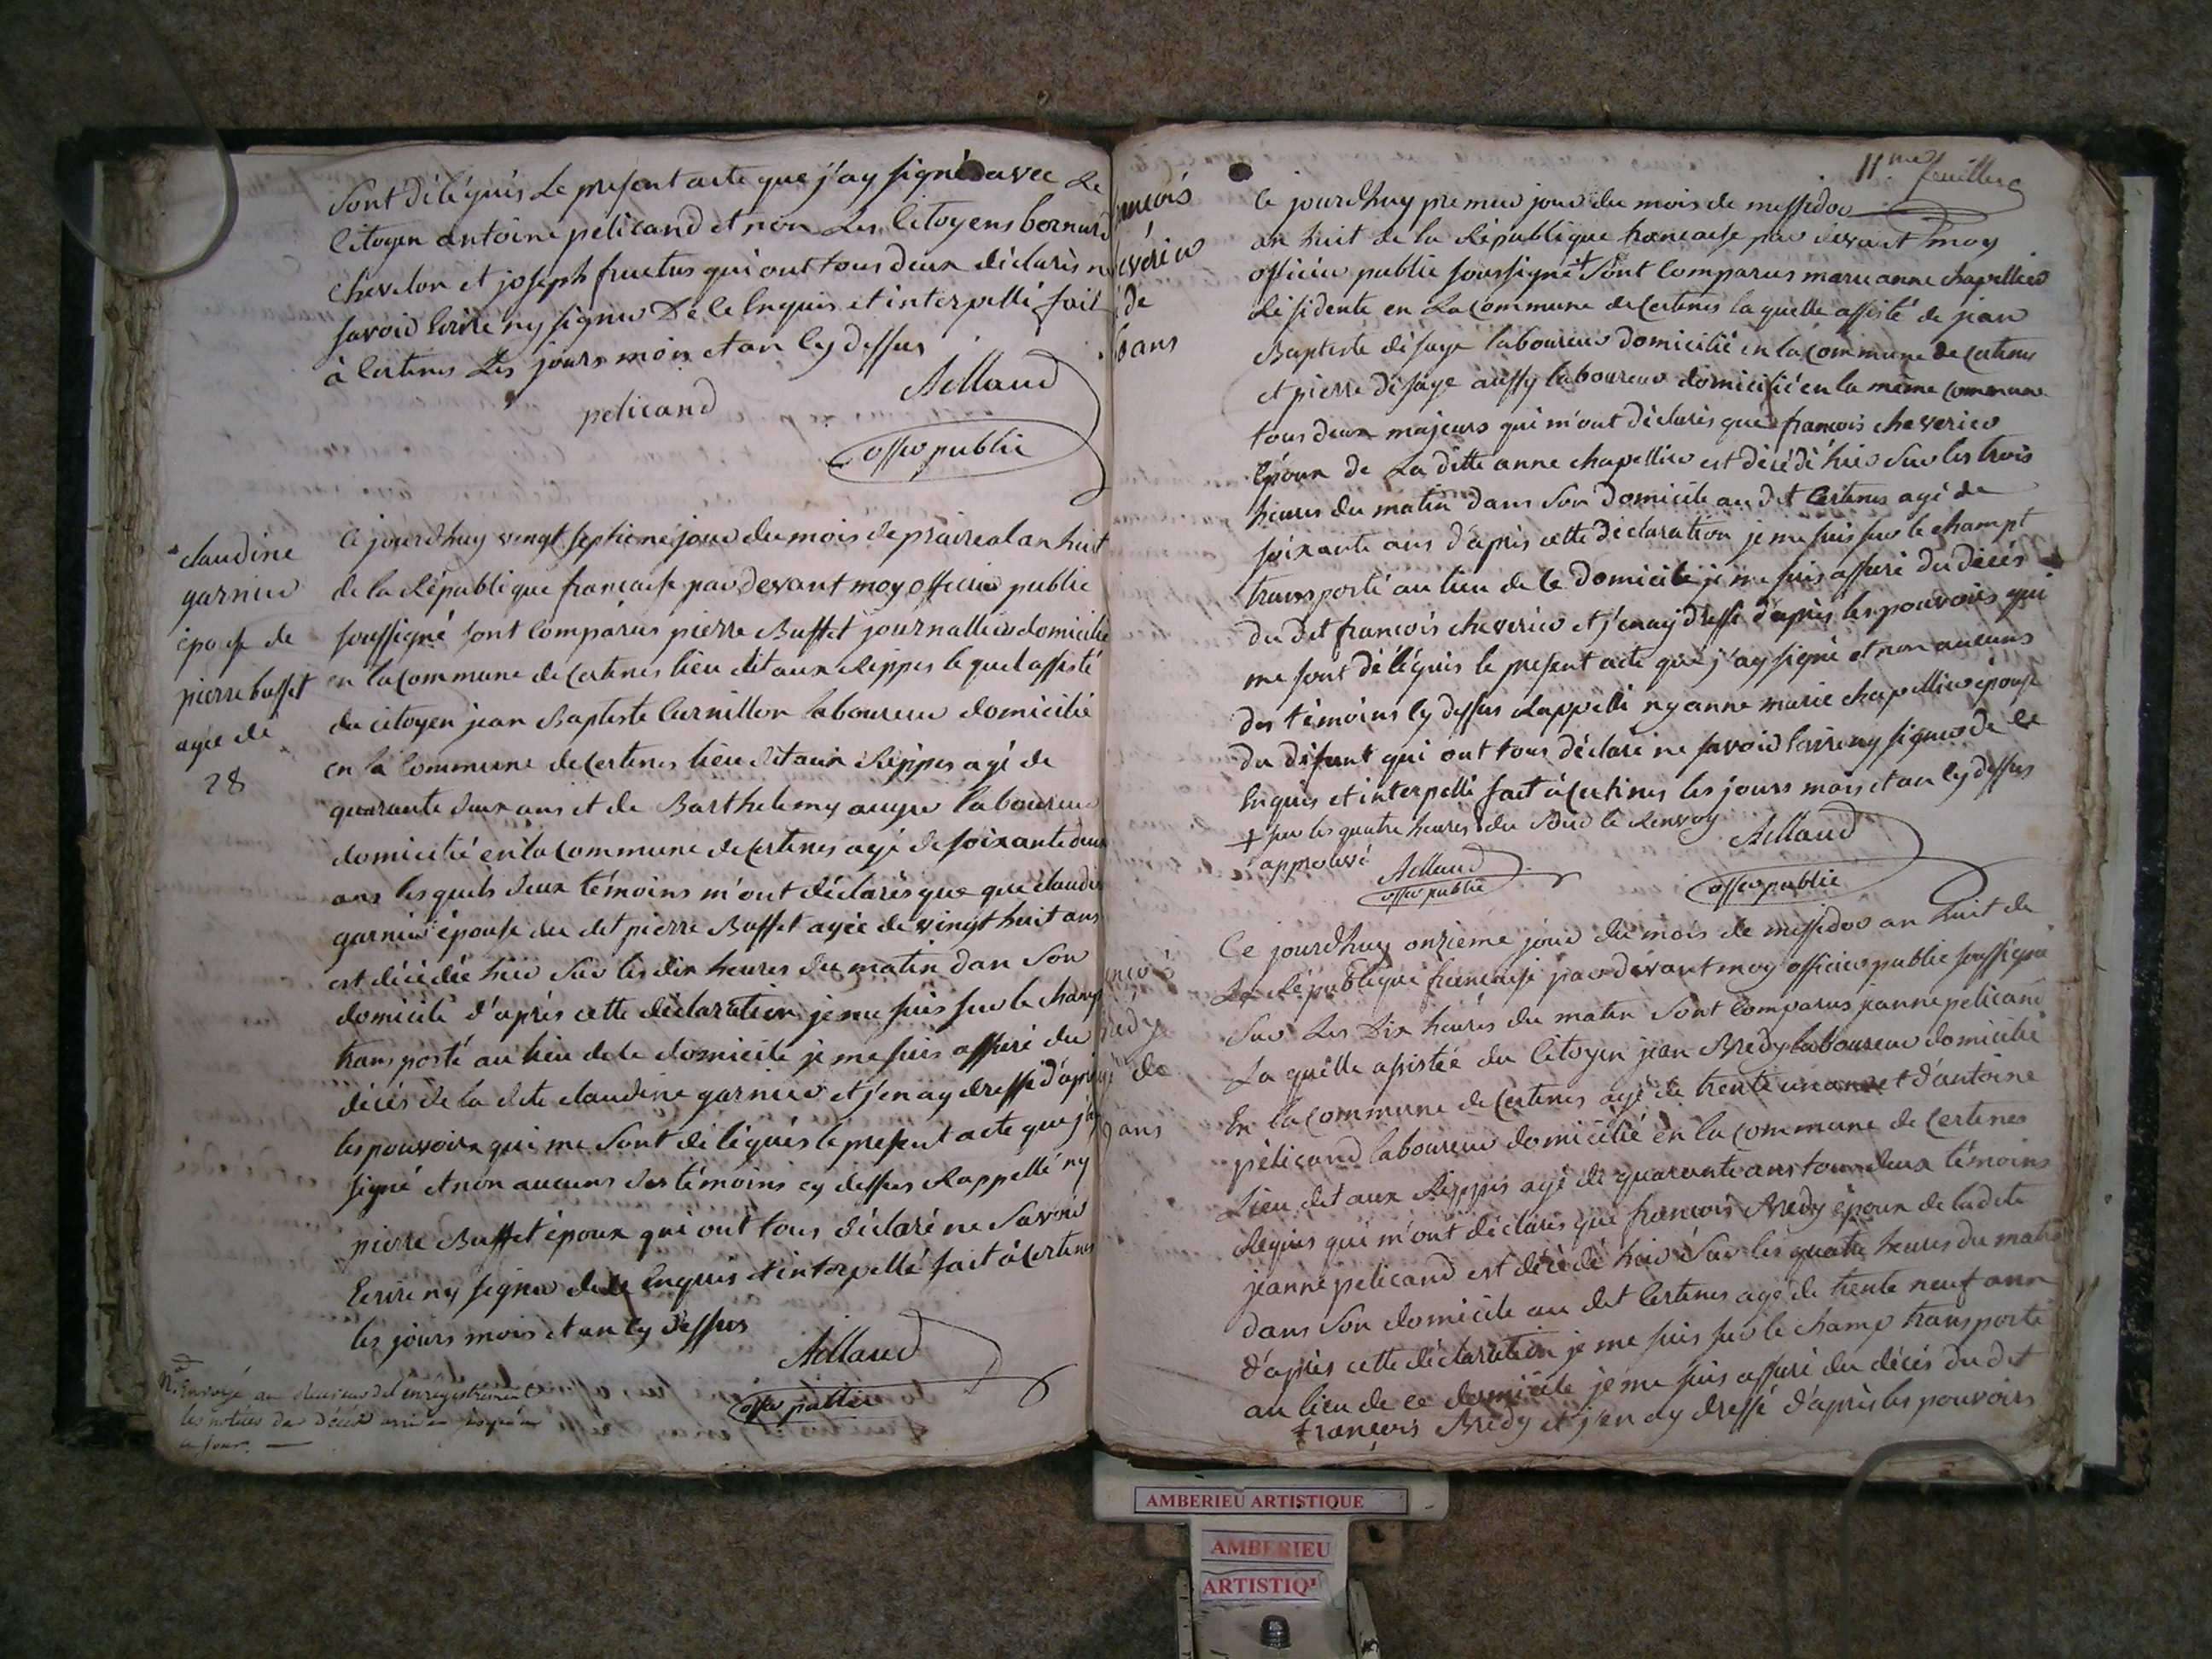 Sont délégués le present acte que j'ay signé avec le
Citoyen antoine pelicand et non les Citoyens bernard
chevelon et joseph fructus qui ont tous deux déclarés ne
savoir Ecrire ny signer De ce Enquis et interpellé fait
à Certines Les jours mois et an Cy dessus
pelicand
Aillaud
offer public
claudine
garnier
épouse de
pierre buffet
agée de
28
Ce jourdhuy vingt septieme jour du mois de prairéal an huit
de la République francaise par devant moy officier public
soussigné sont Comparus pierre Buffet journallier domicilié
en la Commune de Certines lieu dit aux Rippes le quel assisté
du citoyen jean Baptiste Curnillon laboureur domicilié
en la Commune de Certines lieu dit aux Rippes agé de
quarante deux ans et de Barthelemy auger laboureur
domicilié en la Commune de Certines agé de soixante deux
ans les quels deux témoins m'ont déclarés que que claudine
garnier épouse du dit pierre Buffet agée de vingt huit ans
est décédée hier sur les dix heures du matin dan Son
domicile d'après cette déclaration je me suis sur le champ
transporté au lieu de le domicile je me suis assuré du
décés de la dite claudine garnier et j'en ay dressé d'après
les pouvoirs qui me Sont délégués le present acte que j'ay
signé et non aucuns des témoins cy dessus Rappellé ny
pierre Buffet époux qui ont tous déclaré ne Savoir
Ecrire ny signer de ce Enquis et interpellé fait à Certines
les jours mois et an Cy dessus
Aillaud
offer public
Envoyé au Receveur del enregistrement
les notices des décès
a jour.
11.me feuillet
françois
cheverier
de
ans
Ce jourdhuy premier jour du mois de messidor
an huit de la République francaise par devant moy
officier public soussigné + Sont Comparus marie anne chapellier
Résidente en La Commune de Certines la quelle assisté de jean
Baptiste désaye laboureur domicilié en la Commune de Certines
et pierre désaye aussy laboureur domicilié en la même Commune
tous deux majeurs qui m'ont déclarés que françois cheverier
Epoux de La ditte anne chapellier est décédé hier Sur les trois
heures du matin dans Son Domicile au dit Certines agé de
soixante ans d'après cette déclaration je me suis sur le champt
transporté au lieu de le Domicile je me suis assuré du décés
du dit francois cheverier et j'en ay dressé d'après les pouvoirs qui
me sont délégués le present acte que j'ay signé et non aucuns
des témoins Cy dessus Rappellé ny anne marie chapellier épouse
du défunt qui ont tous déclaré ne savoir Ecrire ny signer de ce
Enquis et interpellé fait à Certines les jours mois et an Cy dessus
+ sur les quatre heures du Soir le Renvoy
approuvé
Aillaud
offer public
Aillaud
offer public
de
ans
Ce jourdhuy onzieme jour du mois de messidor an huit de
La République francaise par devant moy officier public soussigné
Sur Les Dix heures du matin Sont Comparus jeanne pelicand
La quelle assistée du Citoyen jean Bredy laboureur domicilié
En la Commune de Certines agé de trente un ans et d'antoine
pélicand laboureur domicilié en la Commune de Certines
Lieu dit aux Rippes agé de quarante ans tous deux témoins
Réquis qui m'ont déclarés que francois Bredy époux de ladite
jeanne pelicand est décédé hier Sur les quatre heures du matin
dans Son domicile au dit Certines agé de trente neuf ans
d'après cette déclaration je me suis sur le champ transporté
au lieu de ce domicile je me suis assuré du décés du dit
françois Bredy et j'en ay dressé d'après les pouvoirs
AMBERIEU ARTISTIQUE
AMBERIEU
ARTISTIQ